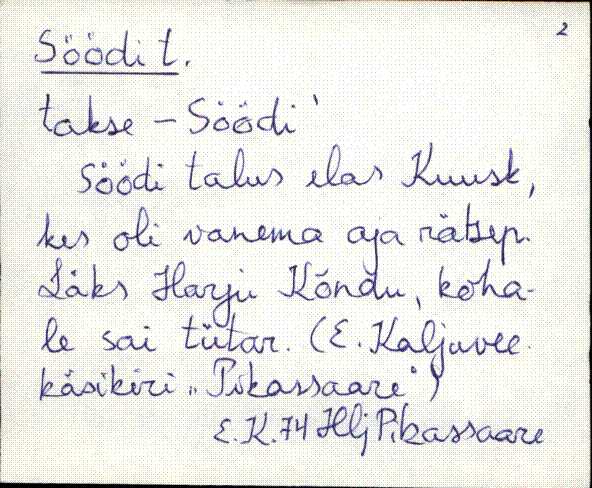 2
Söödi t.
takse – Söödi'
Söödi talus elas Kuusk,
kes oli vanema aja rätsep.
Läks Harju Kõndu, koha-
le sai tütar. (E. Kaljuvee
käsikiri „Pikassaare")
E.K. 74 Hlj Pikassaare